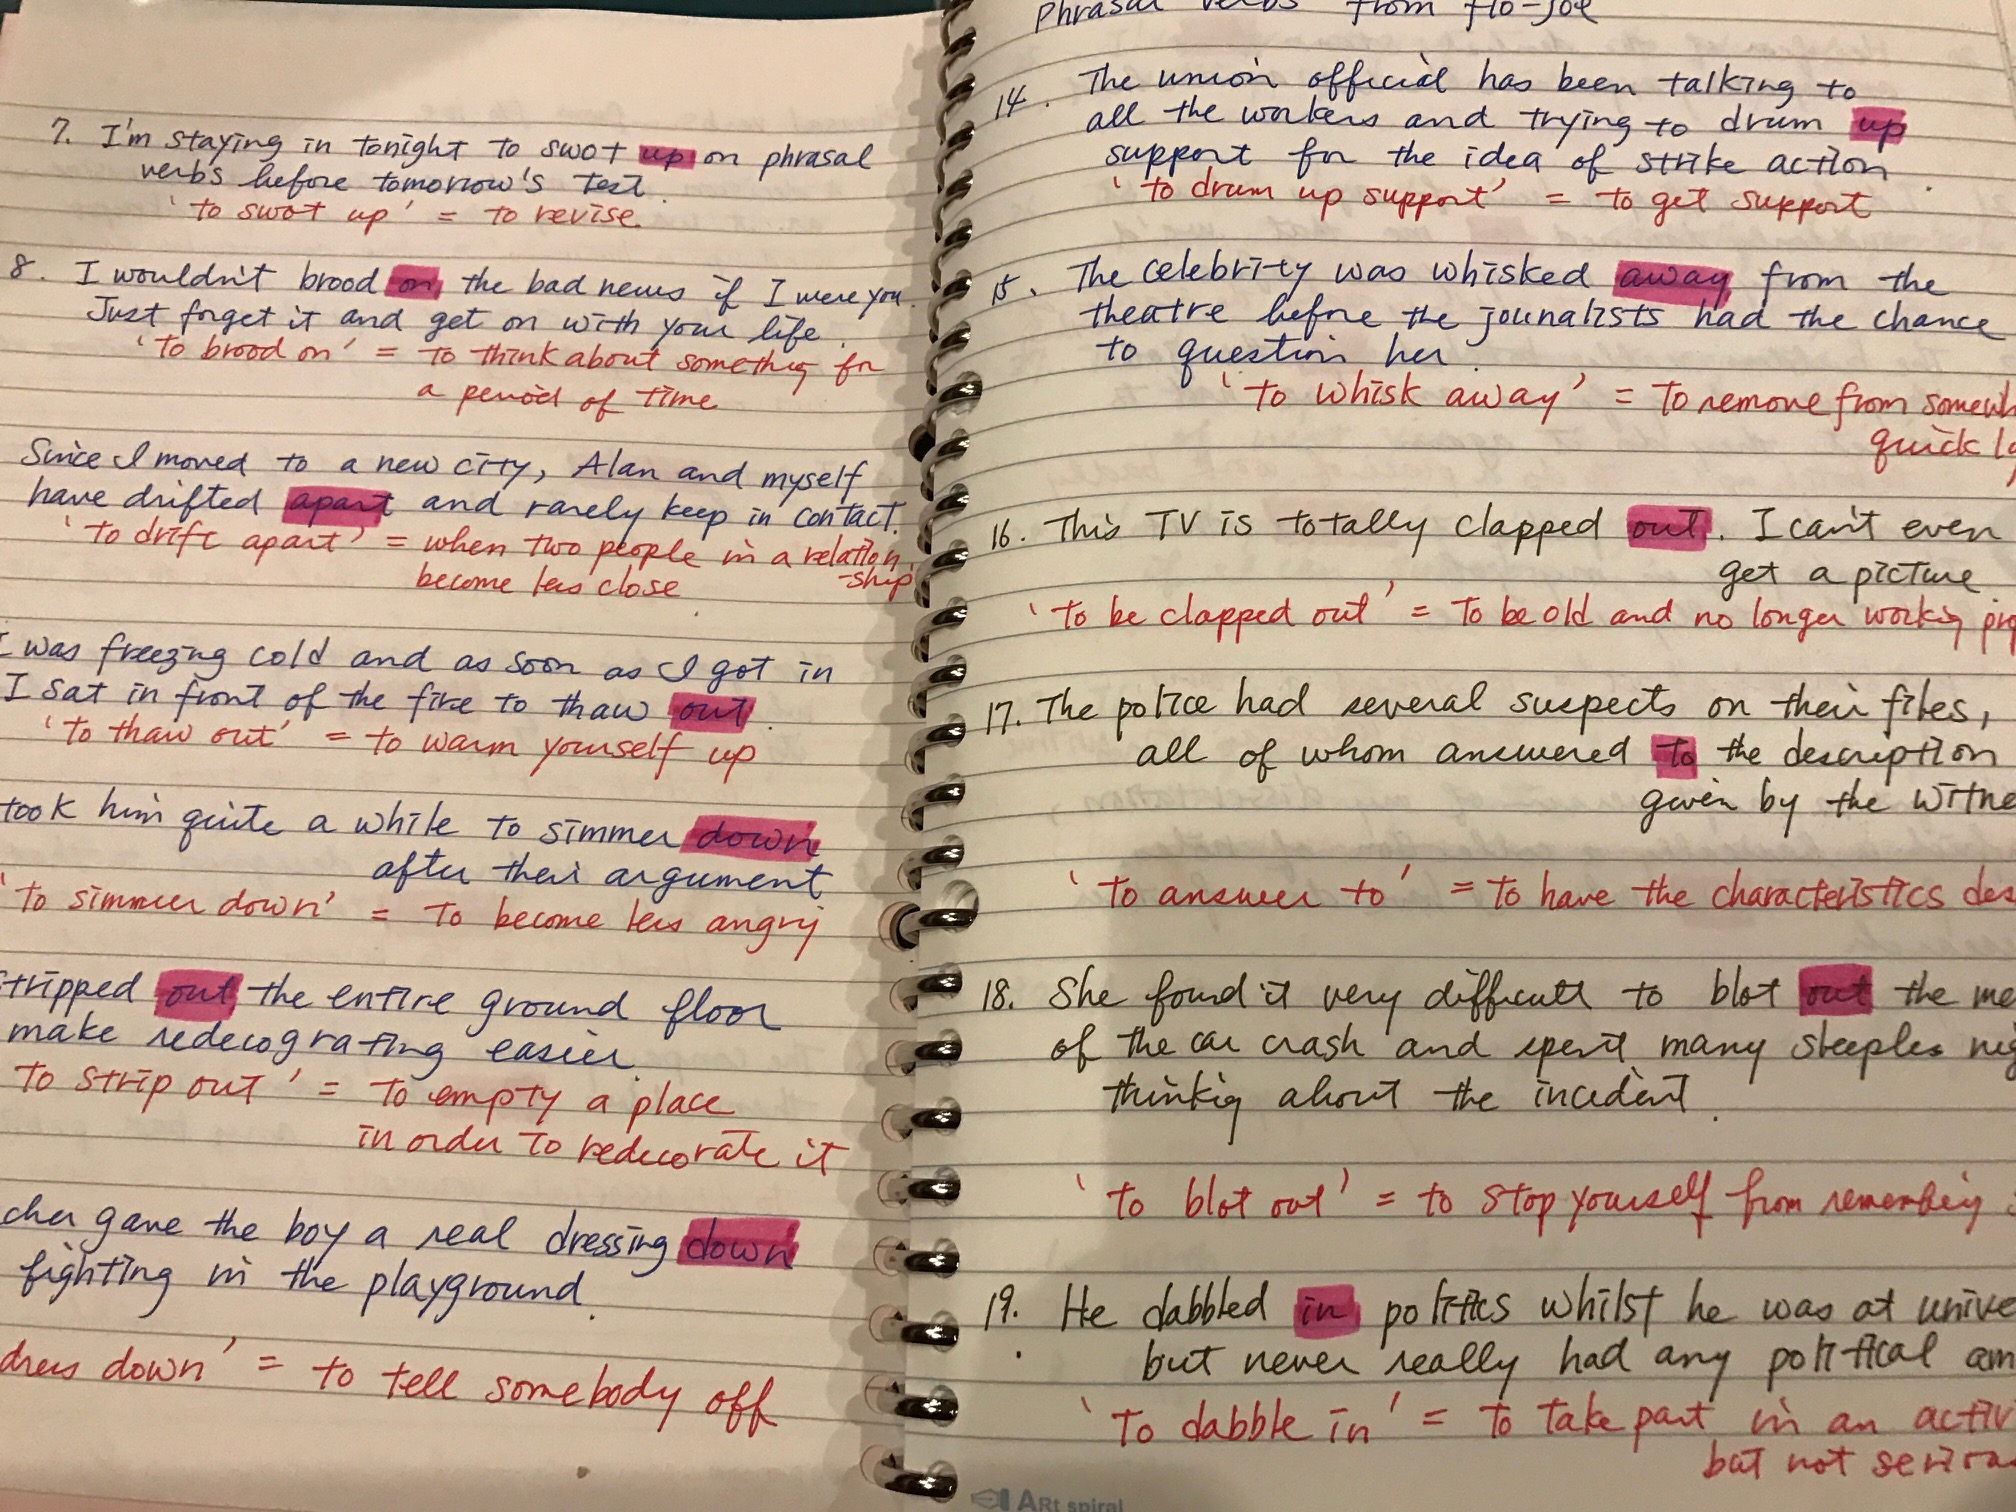 7. I'm staying in tonight to swot up on phrasal
verbs before tomorrow's test.
'to swot up' = to revise.
8. I wouldn't brood on the bad news if I were you.
Just forget it and get on with your life.
'To brood on' = to think about something for
a period of time
Since I moved to a new city, Alan and myself
have drifted apart and rarely keep in contact.
'to drift apart' = when two people in a relation
-ship
become less close
I was freezing cold and as soon as I got in
I sat in front of the fire to thaw out.
'to thaw out' = to warm yourself up
took him quite a while to simmer down
after their argument
'to simmer down' = to become less angry
stripped out the entire ground floor
make redecograting easier.
To strip out' = to empty a place
in order to redecorate it
cher gave the boy a real dressing down
fighting in the playground.
dress down' = to tell somebody off
Phrasal verbs from flo-joe
14. The union official has been talking to
all the workers and trying to drum up
support for the idea of strike action.
'to drum up support' = to get support
15. The celebrity was whisked away from the
theatre before the jounalists had the chance
to question her.
'to whisk away' = to remove from somewh
quickly
16. This TV is totally clapped out. I can't even
get a picture
'to be clapped out' = to be old and no longer working pro
17. The police had several suspects on their files,
all of whom answered to the description
given by the witne
'to answer to' = to have the characteristics des
18. She found it very difficult to blot out the me
of the car crash and spent many sleepless nig
thinking about the incident.
'to blot out' = to stop yourself from remembering
19. He dabbled in politics whilst he was at unive
but never really had any political am
'to dabble in' = to take part in an activ
but not seriou
ARt spiral